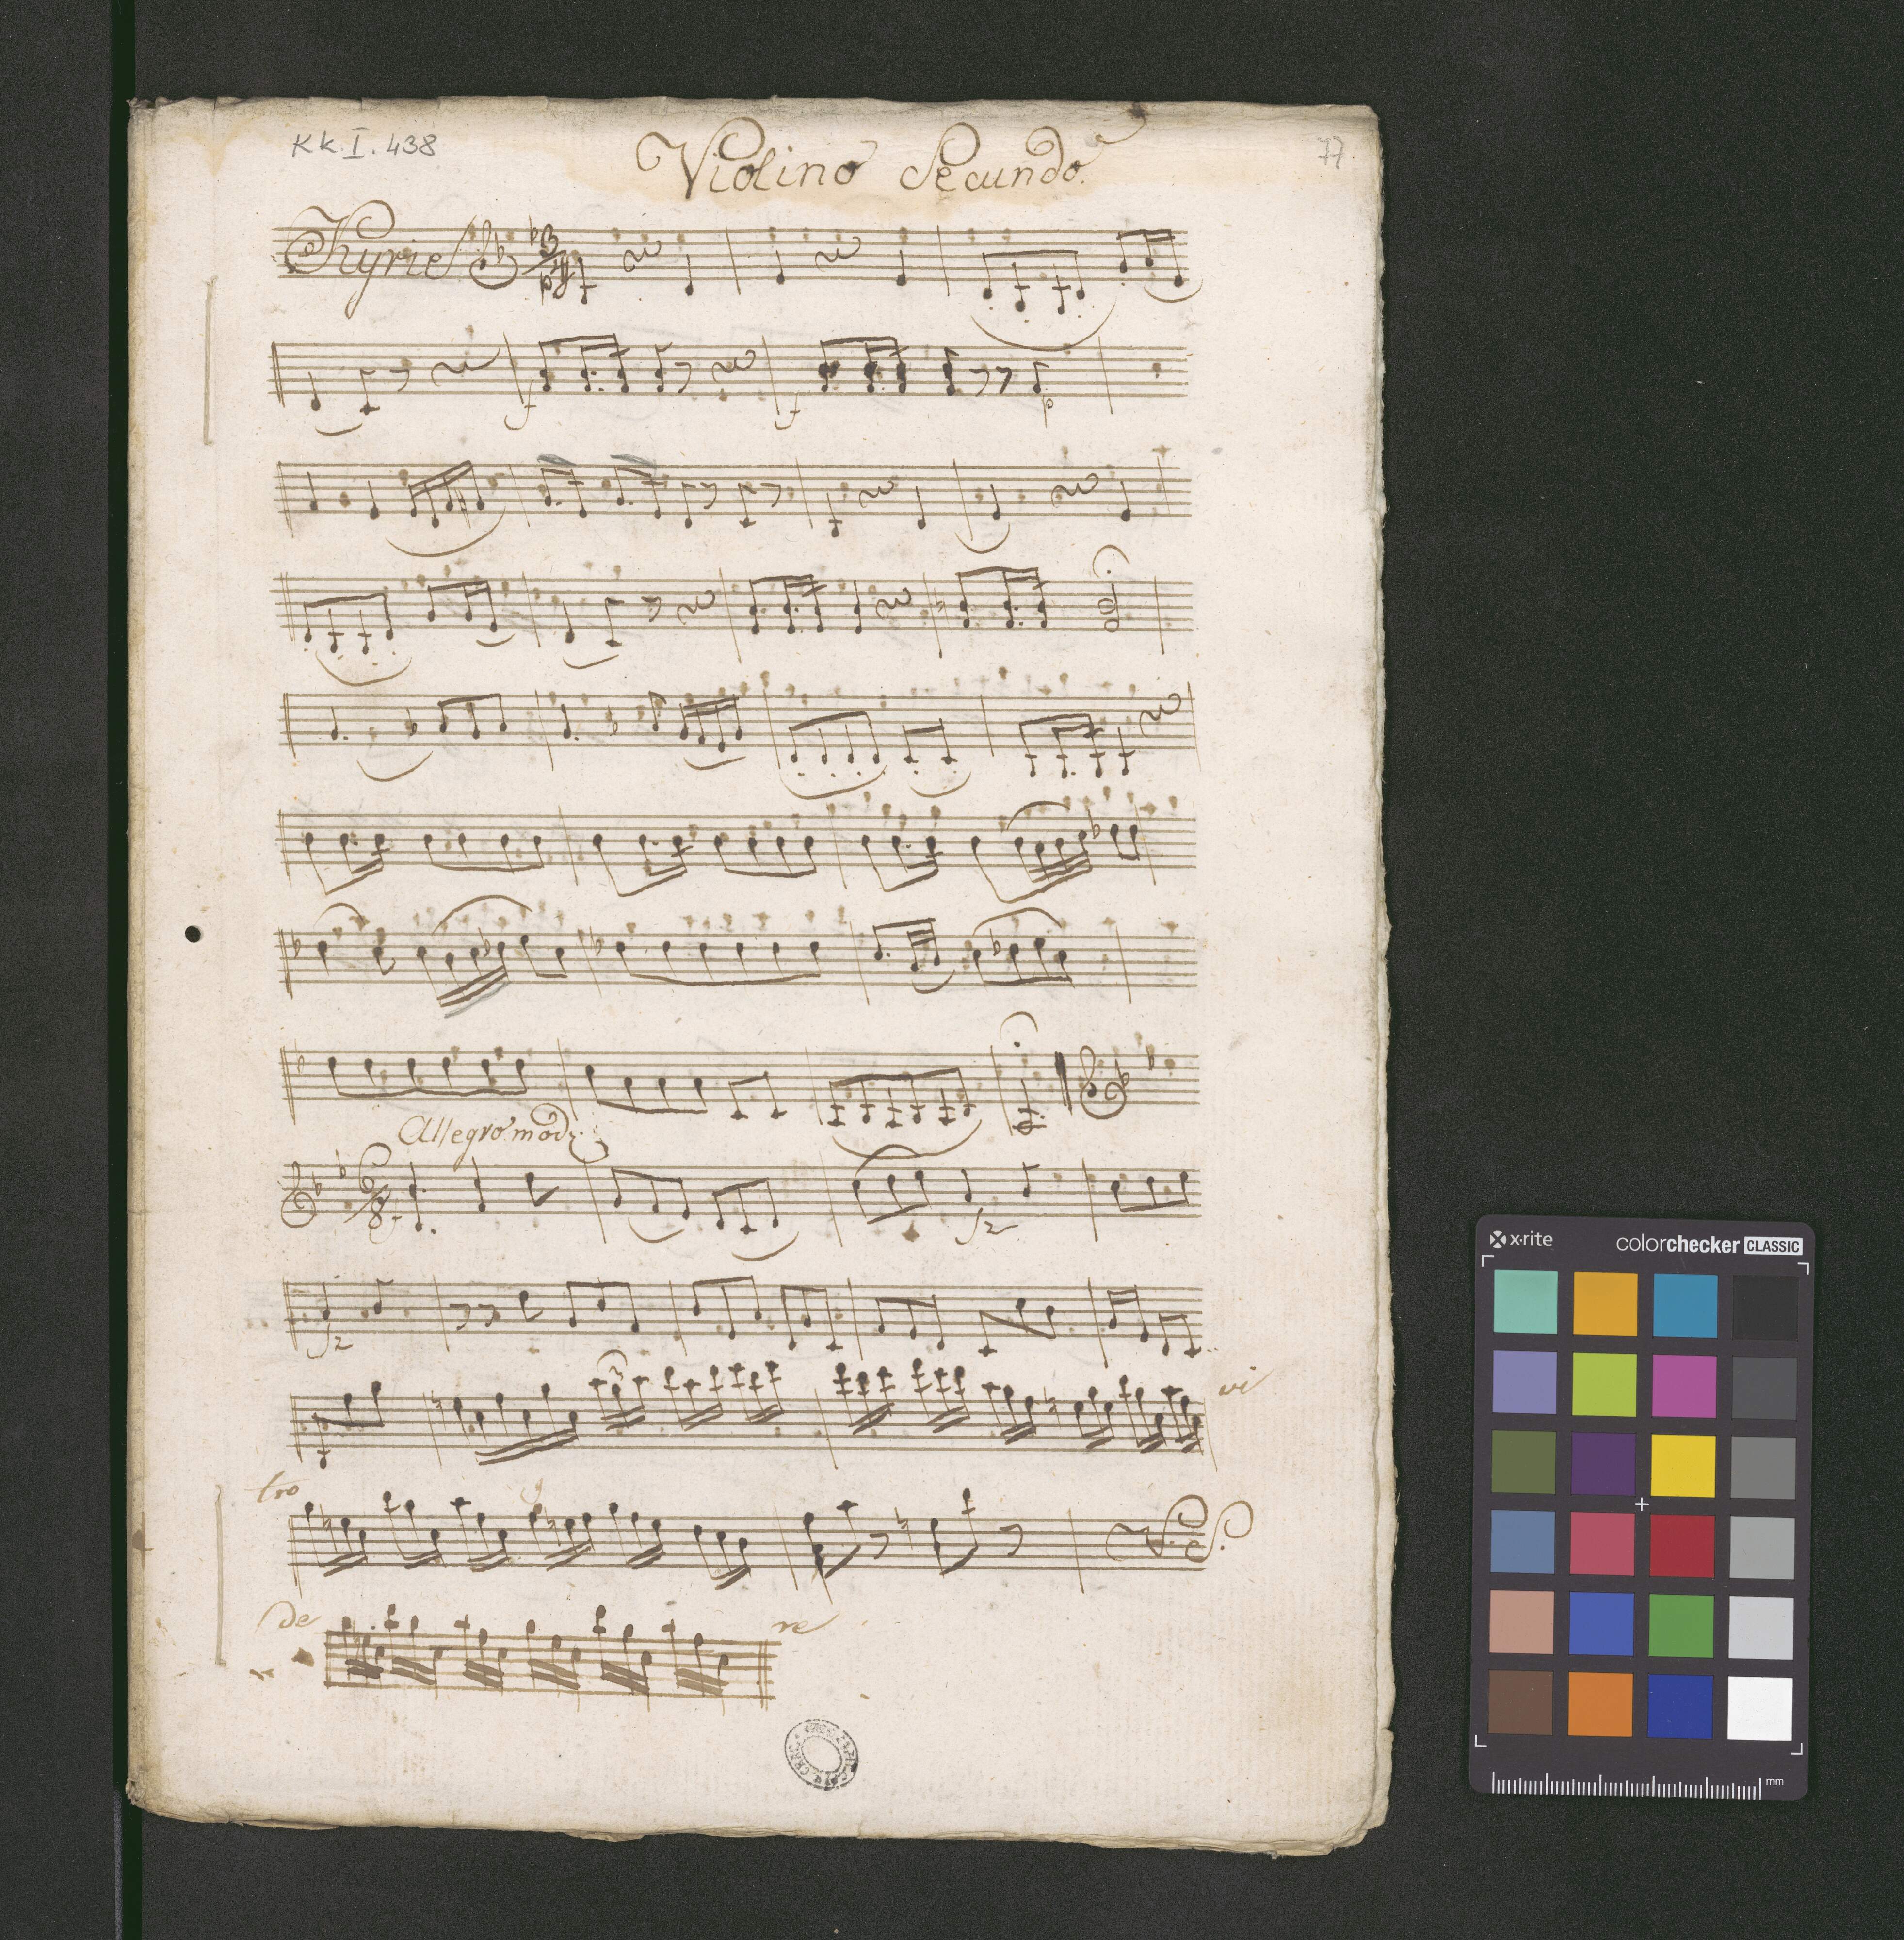 Kk. I. 438
Violino Secundo.
77
Kyrie
3
p
f
f
p
Allegro mod:
6
8
f
fz
fz
3
vi
tro
V. S.
de
re
x·rite
colorchecker CLASSIC
mm